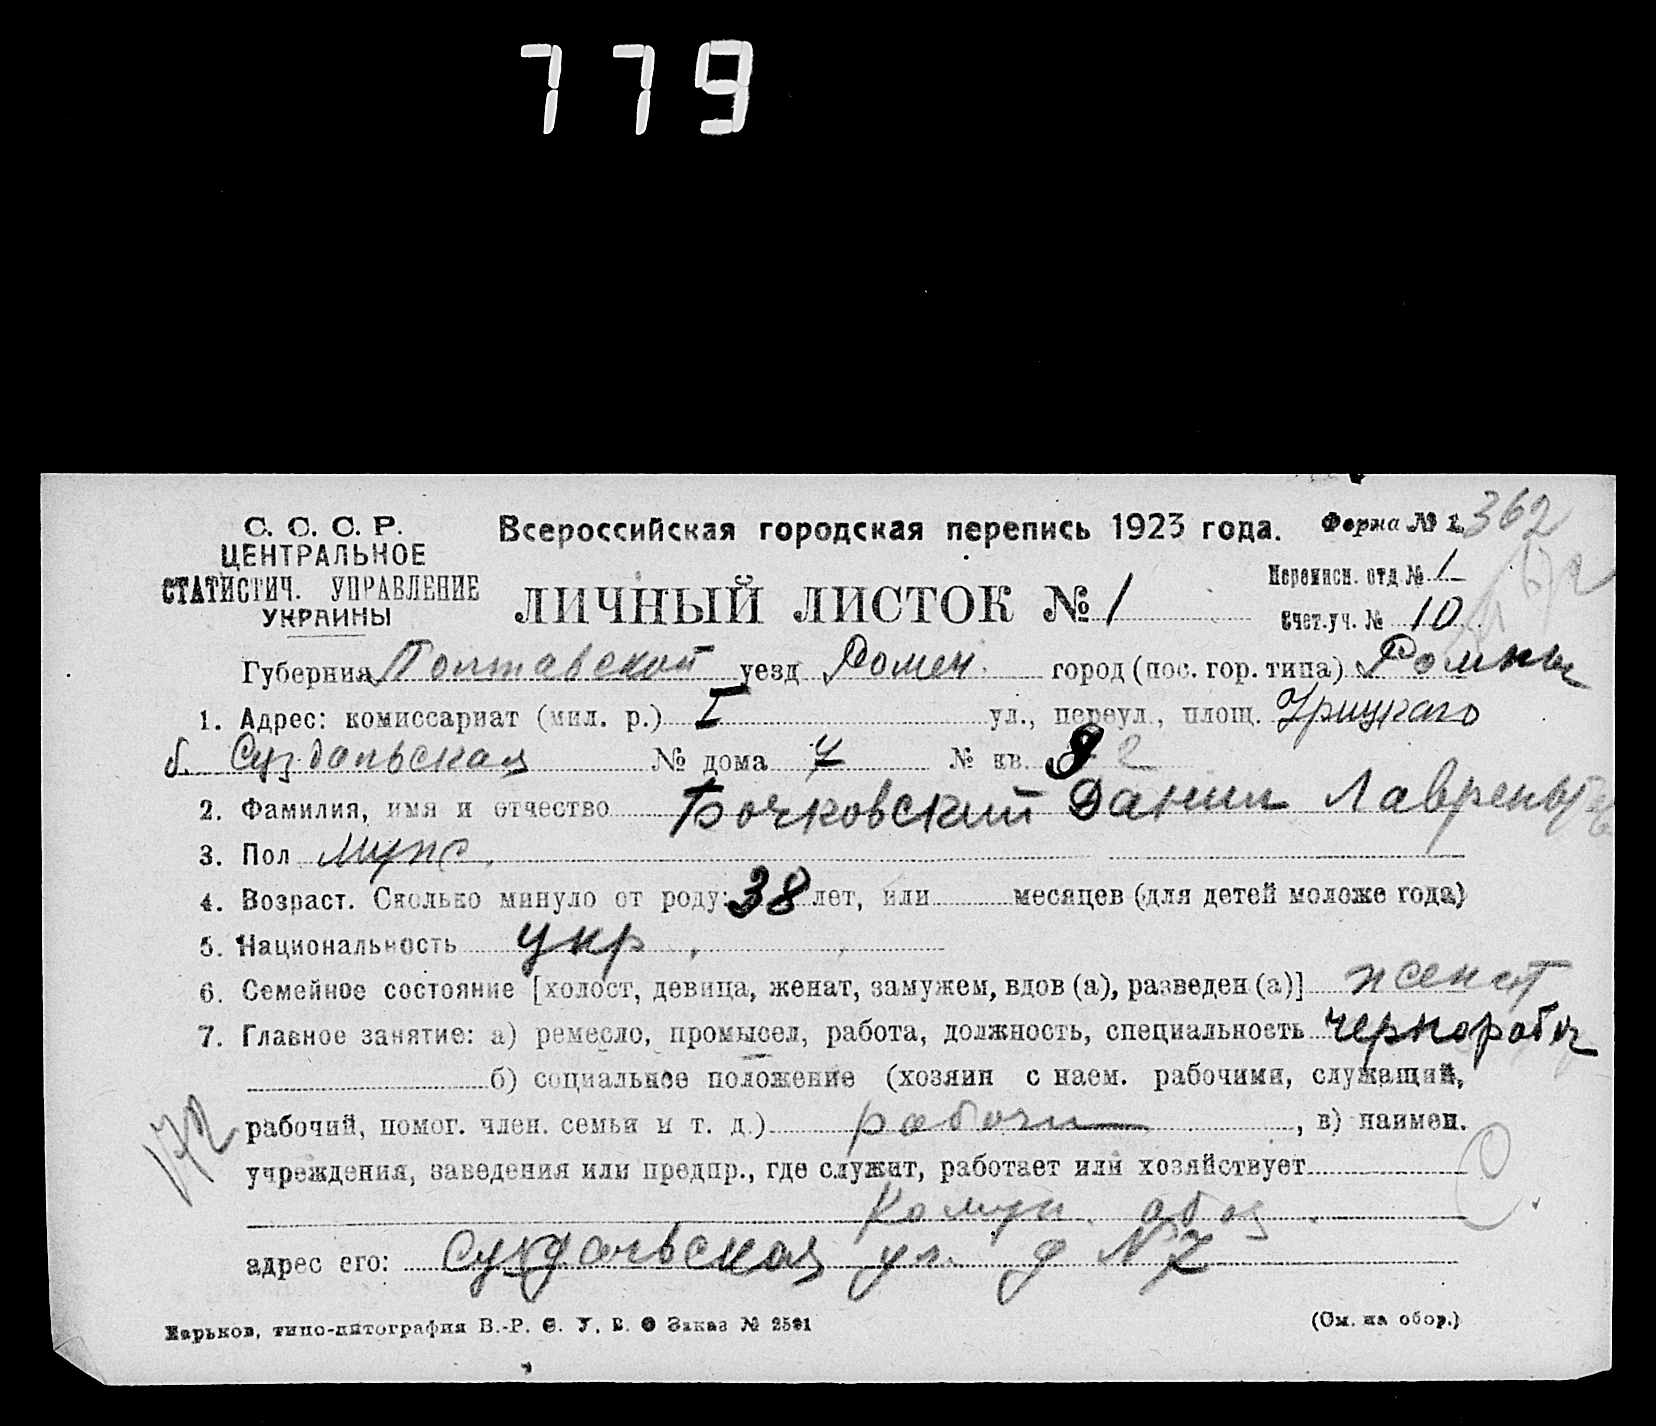 779
С. С. С. Р.
ЦЕНТРАЛЬНОЕ
СТАТИСТИЧ. УПРАВЛЕНИЕ
УКРАИНЫ
Всероссийская городская перепись 1923 года.
Форма № 1. 362
ЛИЧНЫЙ ЛИСТОК № 1
Переписн. отд. № 1
Счет. уч. № 10
Губерния Полтавской уезд Ромен. город (пос. гор. типа) Ромны
1. Адрес: комиссариат (мил. р.) I ул., переул., площ. Урицкаго
б. Суздальская № дома 7 № кв. 8 2
2. Фамилия, имя и отчество Бочковский Данил Лаврентьев
3. Пол мужс.
4. Возраст. Сколько минуло от роду: 38 лет, или месяцев (для детей моложе года)
5. Национальность укр
6. Семейное состояние [холост, девица, женат, замужем, вдов (а), разведен (а)] женат
7. Главное занятие: а) ремесло, промысел, работа, должность, специальность чернорабоч
б) социальное положение (хозяин с наем. рабочими, служащий,
172
рабочий, помог. член. семьи и т. д.) рабочи , в) наимен.
учреждения, заведения или предпр., где служит, работает или хозяйствует
Комун. обоз.
адрес его: Суздальская ул. д № 7
Харьков, типо-литография В.-Р. Заказ № 2591
(См. на обор.)